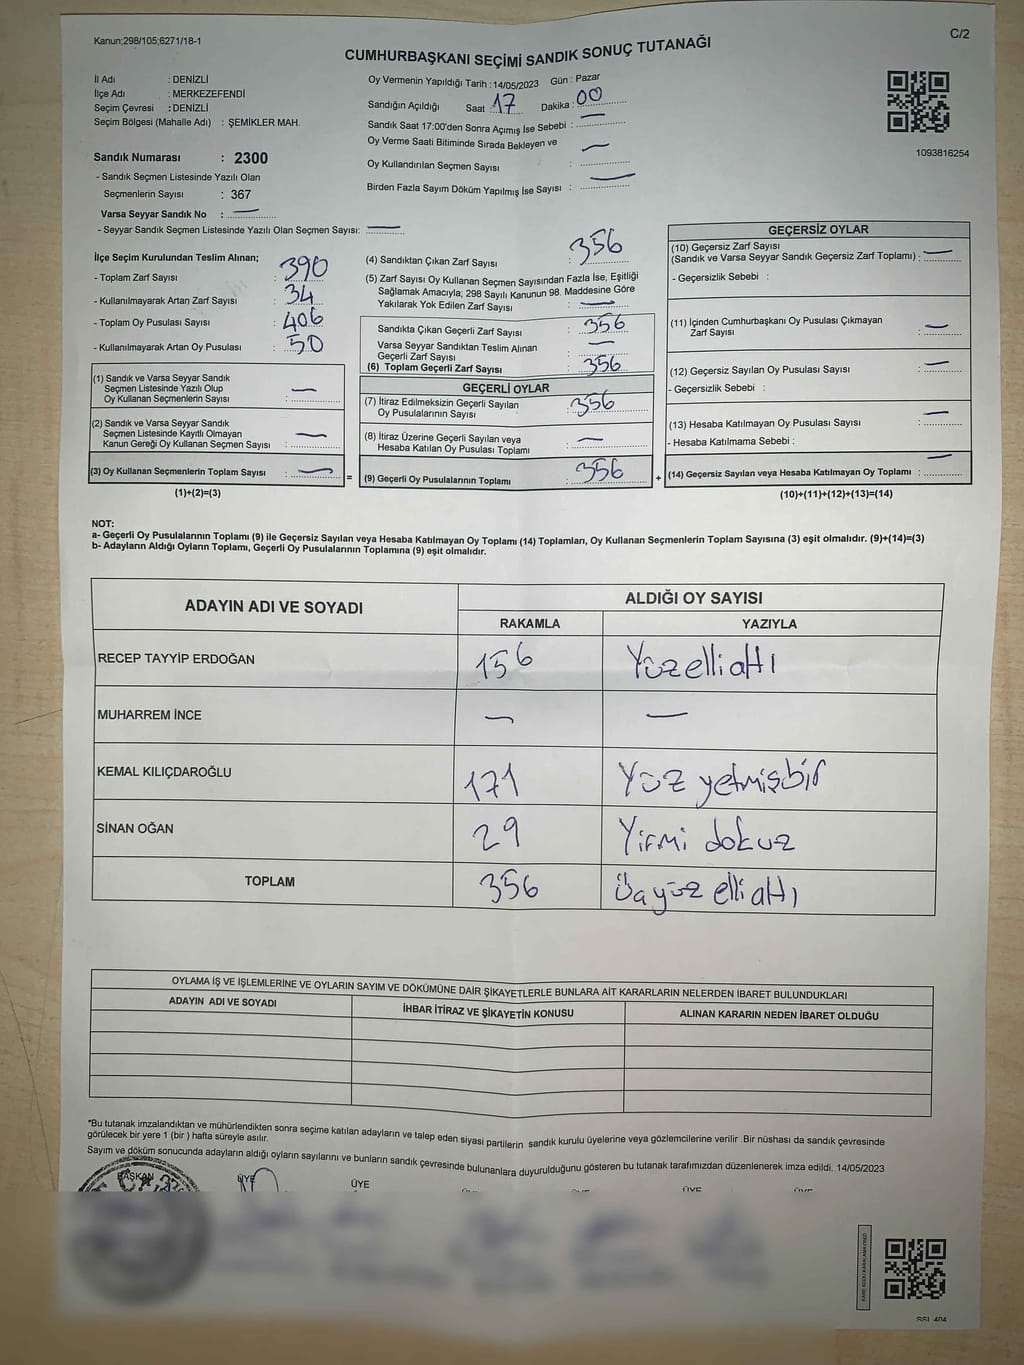 Kanun;298/105;6271/18-1
C/2
CUMHURBAŞKANI SEÇİMİ SANDIK SONUÇ TUTANAĞI
İl Adı : DENİZLİ
İlçe Adı : MERKEZEFENDİ
Seçim Çevresi : DENİZLİ
Seçim Bölgesi (Mahalle Adı) : ŞEMİKLER MAH.
Oy Vermenin Yapıldığı Tarih : 14/05/2023 Gün : Pazar
Sandığın Açıldığı Saat 17 Dakika : 00
Sandık Saat 17:00'den Sonra Açımış İse Sebebi : —
Oy Verme Saati Bitiminde Sırada Bekleyen ve —
Oy Kullandırılan Seçmen Sayısı :
Birden Fazla Sayım Döküm Yapılmış İse Sayısı : —
1093816254
Sandık Numarası : 2300
- Sandık Seçmen Listesinde Yazılı Olan
Seçmenlerin Sayısı : 367
Varsa Seyyar Sandık No : —
- Seyyar Sandık Seçmen Listesinde Yazılı Olan Seçmen Sayısı: —
İlçe Seçim Kurulundan Teslim Alınan;
- Toplam Zarf Sayısı : 390
- Kullanılmayarak Artan Zarf Sayısı : 34
- Toplam Oy Pusulası Sayısı : 406
- Kullanılmayarak Artan Oy Pusulası : 50
(1) Sandık ve Varsa Seyyar Sandık
Seçmen Listesinde Yazılı Olup
Oy Kullanan Seçmenlerin Sayısı : —
(2) Sandık ve Varsa Seyyar Sandık
Seçmen Listesinde Kayıtlı Olmayan
Kanun Gereği Oy Kullanan Seçmen Sayısı : —
(3) Oy Kullanan Seçmenlerin Toplam Sayısı : —
(1)+(2)=(3)
(4) Sandıktan Çıkan Zarf Sayısı : 356
(5) Zarf Sayısı Oy Kullanan Seçmen Sayısından Fazla İse, Eşitliği
Sağlamak Amacıyla; 298 Sayılı Kanunun 98. Maddesine Göre
Yakılarak Yok Edilen Zarf Sayısı : —
Sandıkta Çıkan Geçerli Zarf Sayısı : 356
Varsa Seyyar Sandıktan Teslim Alınan
Geçerli Zarf Sayısı : —
(6) Toplam Geçerli Zarf Sayısı : 356
GEÇERLİ OYLAR
(7) İtiraz Edilmeksizin Geçerli Sayılan
Oy Pusulalarının Sayısı : 356
(8) İtiraz Üzerine Geçerli Sayılan veya
Hesaba Katılan Oy Pusulası Toplamı : —
= (9) Geçerli Oy Pusulalarının Toplamı : 356 +
GEÇERSİZ OYLAR
(10) Geçersiz Zarf Sayısı
(Sandık ve Varsa Seyyar Sandık Geçersiz Zarf Toplamı) : —
- Geçersizlik Sebebi :
(11) İçinden Cumhurbaşkanı Oy Pusulası Çıkmayan
Zarf Sayısı : —
(12) Geçersiz Sayılan Oy Pusulası Sayısı : —
- Geçersizlik Sebebi :
(13) Hesaba Katılmayan Oy Pusulası Sayısı : —
- Hesaba Katılmama Sebebi :
(14) Geçersiz Sayılan veya Hesaba Katılmayan Oy Toplamı : —
(10)+(11)+(12)+(13)=(14)
NOT:
a- Geçerli Oy Pusulalarının Toplamı (9) ile Geçersiz Sayılan veya Hesaba Katılmayan Oy Toplamı (14) Toplamları, Oy Kullanan Seçmenlerin Toplam Sayısına (3) eşit olmalıdır. (9)+(14)=(3)
b- Adayların Aldığı Oyların Toplamı, Geçerli Oy Pusulalarının Toplamına (9) eşit olmalıdır.
ADAYIN ADI VE SOYADI
ALDIĞI OY SAYISI
RAKAMLA YAZIYLA
RECEP TAYYİP ERDOĞAN 156 Yüzelli altı
MUHARREM İNCE — —
KEMAL KILIÇDAROĞLU 171 Yüz yetmişbir
SİNAN OĞAN 29 Yirmi dokuz
TOPLAM 356 Üçyüz elli altı
OYLAMA İŞ VE İŞLEMLERİNE VE OYLARIN SAYIM VE DÖKÜMÜNE DAİR ŞİKAYETLERLE BUNLARA AİT KARARLARIN NELERDEN İBARET BULUNDUKLARI
ADAYIN ADI VE SOYADI İHBAR İTİRAZ VE ŞİKAYETİN KONUSU ALINAN KARARIN NEDEN İBARET OLDUĞU
*Bu tutanak imzalandıktan ve mühürlendikten sonra seçime katılan adayların ve talep eden siyasi partilerin sandık kurulu üyelerine veya gözlemcilerine verilir .Bir nüshası da sandık çevresinde
görülecek bir yere 1 (bir ) hafta süreyle asılır.
Sayım ve döküm sonucunda adayların aldığı oyların sayılarını ve bunların sandık çevresinde bulunanlara duyurulduğunu gösteren bu tutanak tarafımızdan düzenlenerek imza edildi. 14/05/2023
BAŞKAN ÜYE ÜYE ÜYE ÜYE ÜYE